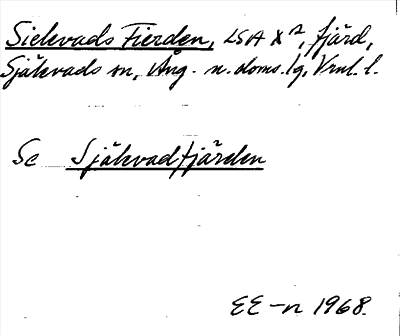 Sielevads Fierden, LSA X², fjärd,
Själevads sn, Ång. n. doms. lg, Vrnl. l.
Se Själevadfjärden
EE-n 1968.